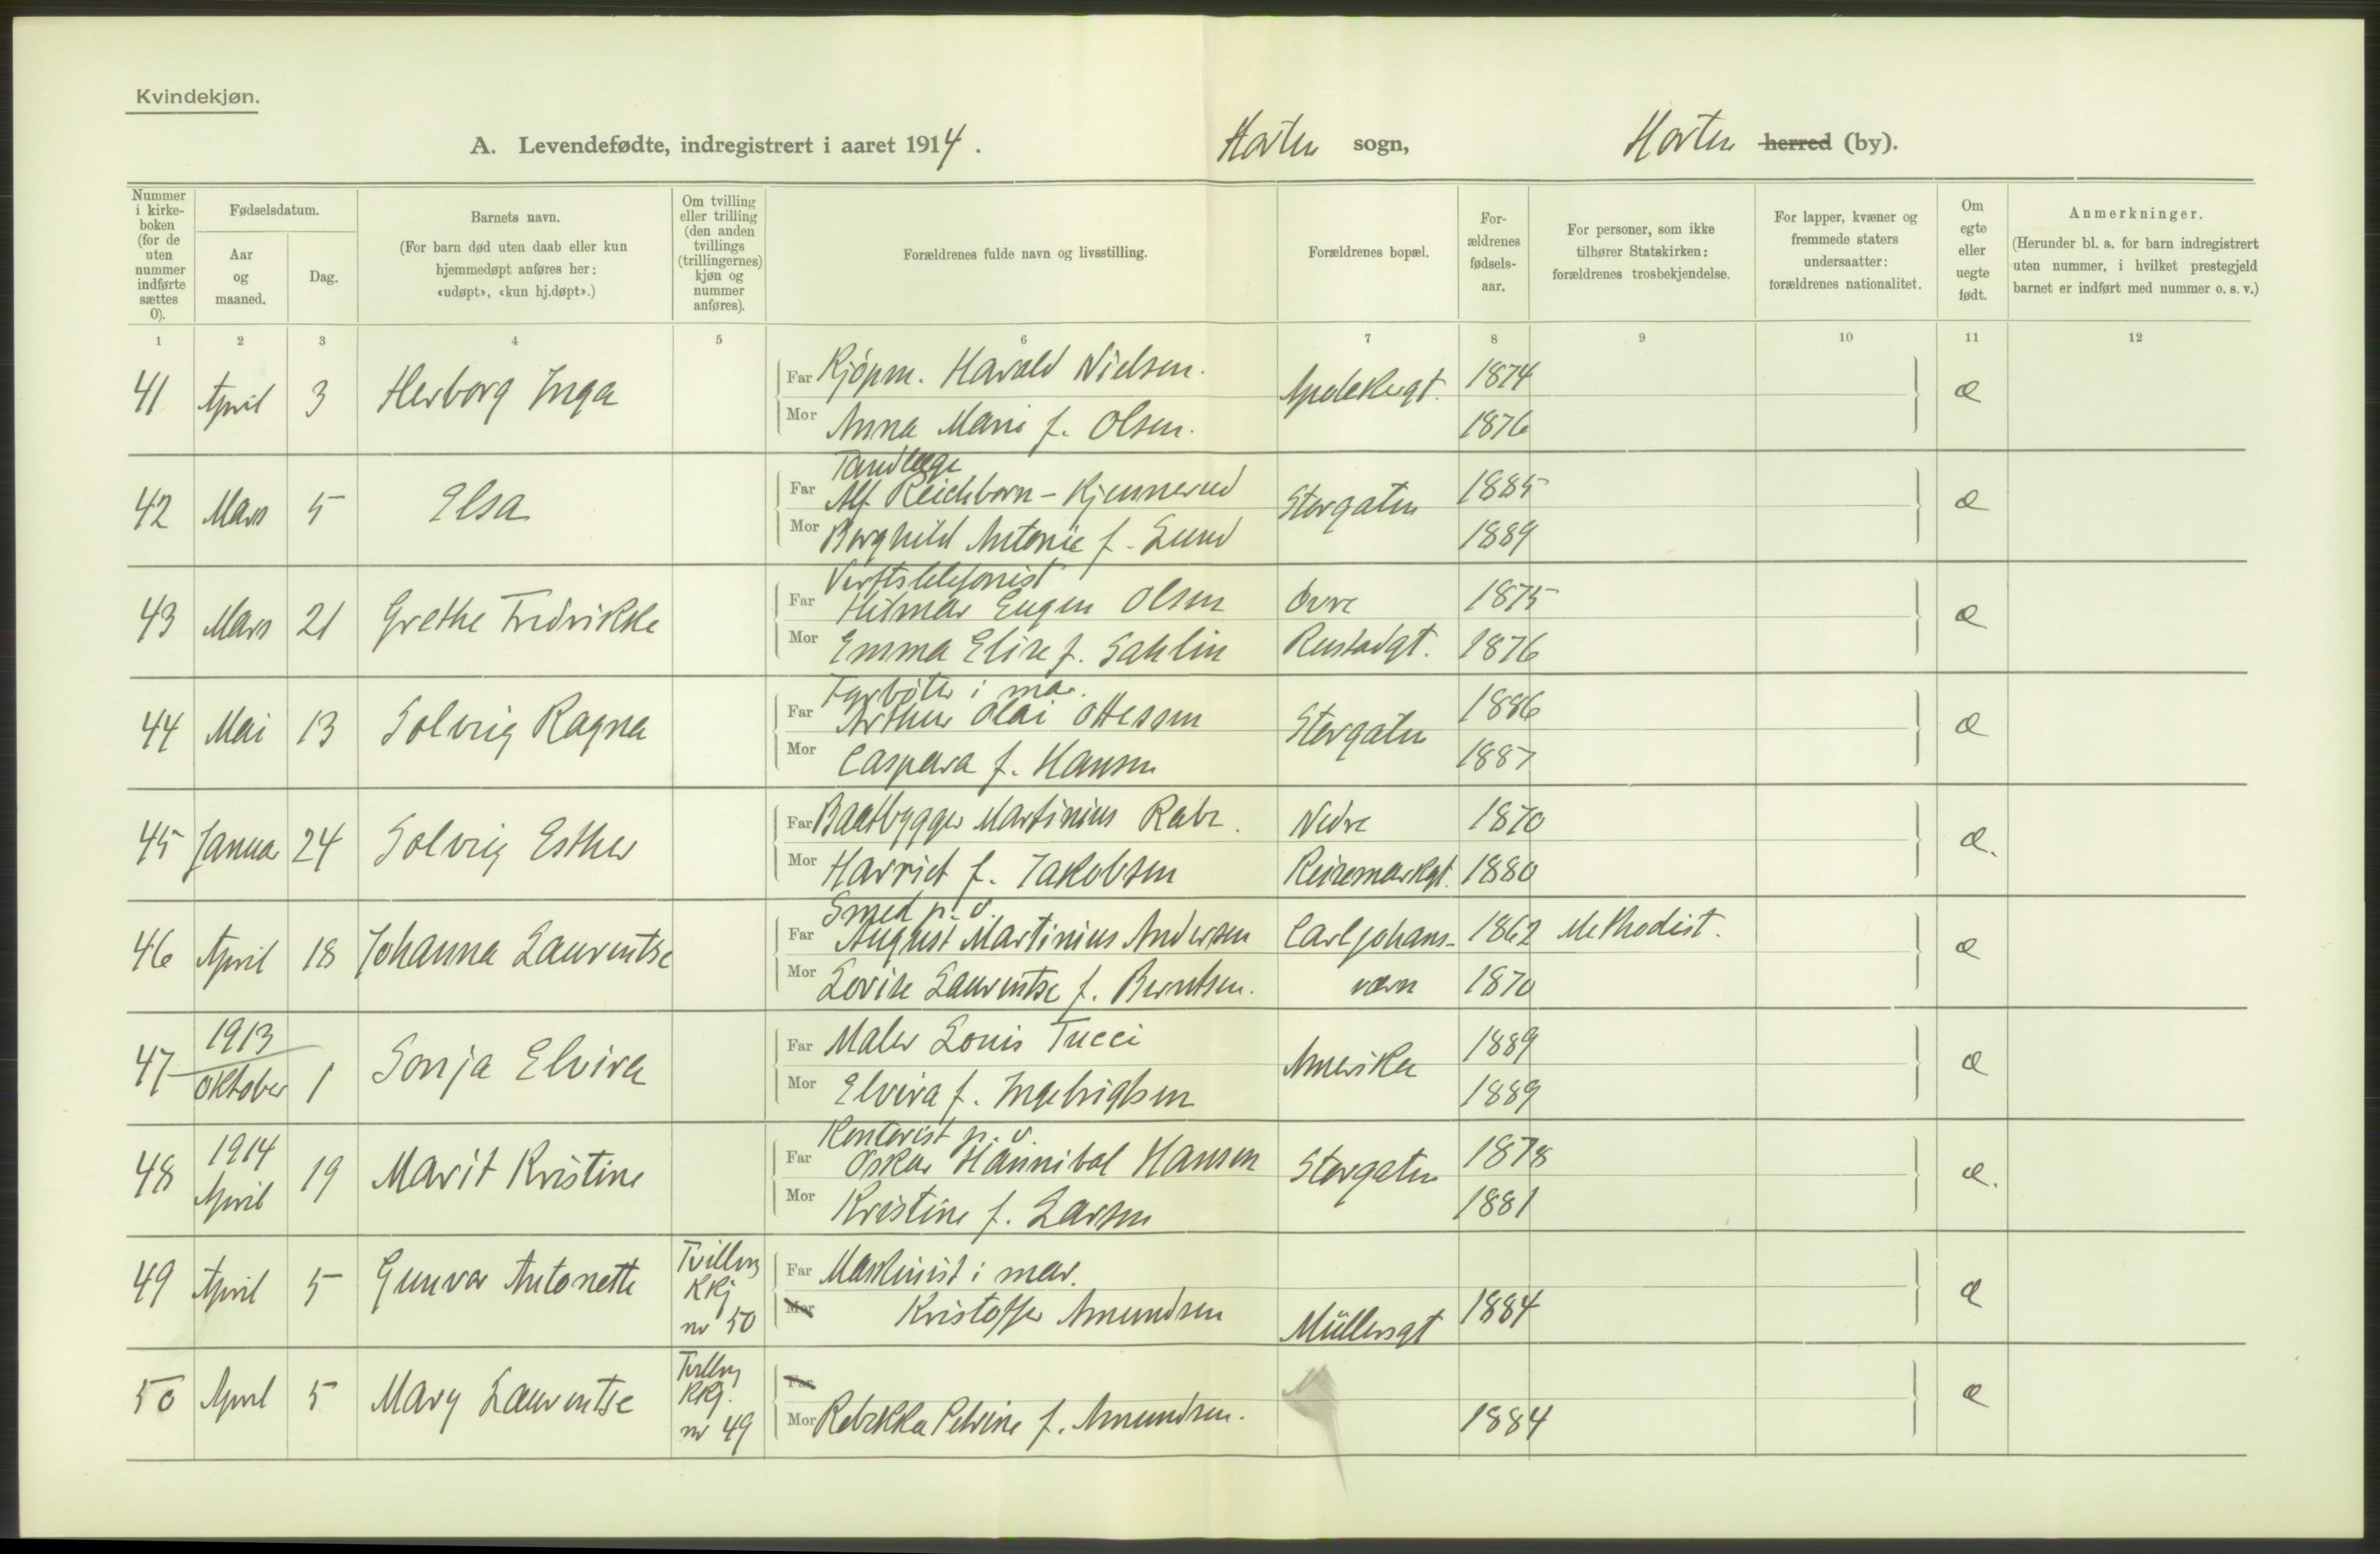 Kvindekjøn.
A. Levendefødte, indregistrert i aaret 1914. Horten sogn, Horten herred (by).
Nummer i kirke-boken (for de uten nummer indførte sættes 0).
Fødselsdatum.
Aar og maaned.
Dag.
Barnets navn.
(For barn død uten daab eller kun hjemmedøpt anføres her: «udøpt», «kun hj.døpt».)
Om tvilling eller trilling (den anden tvillings (trillingernes) kjøn og nummer anføres).
Forældrenes fulde navn og livsstilling.
Forældrenes bopæl.
For-ældrenes fødsels-aar.
For personer, som ikke tilhører Statskirken: forældrenes trosbekjendelse.
For lapper, kvæner og fremmede staters undersaatter: forældrenes nationalitet.
Om egte eller uegte født.
Anmerkninger.
(Herunder bl. a. for barn indregistrert uten nummer, i hvilket prestegjeld barnet er indført med nummer o. s. v.)
1 2 3 4 5 6 7 8 9 10 11 12
41 April 3 Herborg Inga Far Kjöpm. Harald Nielsen. Apotekergt. 1874 æ
Mor Anna Marie f. Olsen. 1876
Tandlæge
42 Mars 5 Elsa Far Alf Reichborn-Kjennerud Storgaten 1885 æ
Mor Borghild Antonie f. Lund 1889
Verftstelefonist
43 Mars 21 Grethe Fredrikke Far Hilmar Eugen Olsen Övre 1875 æ
Mor Emma Elise f. Sahlin Rustadgt. 1876
Fyrböter i mar.
44 Mai 13 Solveig Ragna Far Arthur Olai Ottesen Storgaten 1886 æ
Mor Caspara f. Hansen 1887
45 Januar 24 Solveig Esther Far Baatbygger Martinius Rabe. Nedre 1870 æ.
Mor Harriet f. Jakobsen Keisemarkgt. 1880
Smed p. v.
46 April 18 Johanna Laurentse Far August Martinius Andersen Carljohans- 1862 Methodist. æ
Mor Lovise Laurentse f. Berntsen. værn 1870
1913
47 Oktober 1 Sonja Elvira Far Maler Louis Tucci Amerika 1889 æ
Mor Elvira f. Ingebrigtsen 1889
Kontorist p. v.
1914
48 April 19 Marit Kristine Far Oskar Hannibal Hansen Storgaten 1878 æ.
Mor Kristine f. Larsen 1881
49 April 5 Gunvor Antonette Tvilling Kkj nr 50 Far Maskinist i mar. æ
Mor Kristoffer Amundsen Müllersgt 1884
50 April 5 Mary Laurentse Tvilling Kkj. nr 49 Far æ
Mor Rebekka Petrine f. Amundsen. 1884